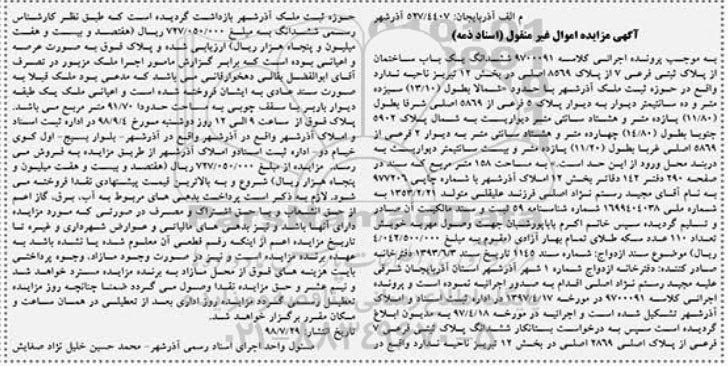 م الف آذربایجان: ۵۲۷/۴۴۰۷ آذرشهر
آگهی مزایده اموال غیر منقول (اسناد ذمه)
به موجب پرونده اجرائی کلاسه ۹۷۰۰۰۹۱ ششدانگ یک باب ساختمان
از پلاک ثبتی فرعی ۷ از پلاک ۸۵۶۹ اصلی در بخش ۱۲ تبریز ناحیه ندارد
واقع در حوزه ثبت ملک آذرشهر با حدود «شمالا بطول (۱۳/۱۰) سیزده
متر و ده سانتیمتر دیوار به دیوار پلاک ۵ فرعی از ۵۸۶۹ اصلی شرقا بطول
(۱۱/۸۰) یازده متر و هشتاد سانتی متر دیواریست به شمال پلاک ۵۹۰۲
جنوبا بطول (۱۴/۸۰) چهارده متر و هشتاد سانتی متر به دیوار ۲ فرعی از
۵۸۶۹ اصلی غربا بطول (۱۱/۲۰) یازده متر و بیست سانتیمتر دیواریست به
دربند محل ورود از این حد است.» به مساحت ۱۵۸ متر مربع که سند در
صفحه ۲۹۰ دفتر ۱۴۲ دفاتر بخش ۱۲ املاک آذرشهر با شماره چاپی ۹۷۷۲۰۶
به نام آقای مجید رستم نژاد اصلی فرزند علیقلی متولد ۱۳۵۳/۲/۲۱ به
شماره ملی ۱۶۹۹۴۰۴۰۳۸ شماره شناسنامه ۵۹ ثبت و سند مالکیت آن صادر
و تسلیم گردیده سپس خانم اکرم باباپورشبان جهت وصول مهریه خویش
تعداد ۱۱۰ عدد سکه طلای تمام بهار آزادی (مقوم به مبلغ ۴/۰۴۲/۵۰۰/۰۰۰
ریال) موضوع سند ازدواج: شماره سند ۱۱۴۵ تاریخ سند ۱۳۹۳/۶/۳ دفترخانه
صادر کننده: دفترخانه ازدواج شماره ۱ شهر آذرشهر استان آذربایجان شرقی
علیه مجید رستم نژاد اصلی اقدام به صدور اجرائیه نموده است و پرونده
اجرائی کلاسه ۹۷۰۰۰۹۱ در مورخه ۱۳۹۷/۴/۱۷ در اداره ثبت اسناد و املاک
آذرشهر تشکیل شده است و اجرائیه در مورخه ۹۷/۴/۱۸ به مدیون ابلاغ
گردیده است سپس به درخواست بستانکار ششدانگ پلاک ثبتی فرعی ۷
فرعی از پلاک اصلی ۲۸۶۹ اصلی در بخش ۱۲ تبریز ناحیه ندارد واقع در
حوزه ثبت ملک آذرشهر بازداشت گردیده است که طبق نظر کارشناس
رسمی ششدانگ به مبلغ ۷۲۷/۰۵۰/۰۰۰ ریال (هفتصد و بیست و هفت
میلیون و پنجاه هزار ریال) ارزیابی شده و پلاک فوق به صورت عرصه
و اعیانی بوده است که برابر گزارش مامور اجرا ملک مزبور در تصرف
آقای ابوالفضل بقالی دهخوارقانی می باشد که مدعی بود ملک قبلا به
صورت سند عادی به ایشان فروخته شده است و اعیانی ملک یک طبقه
دیوار باربر با سقف چوبی به مساحت حدودا ۹۱/۷۰ متر مربع می باشد.
پلاک فوق از ساعت ۹ الی ۱۲ روز دوشنبه مورخ ۹۸/۹/۴ در اداره ثبت اسناد
و املاک آذرشهر واقع در آذرشهر واقع در آذرشهر- بلوار بسیج- اول کوی
خیام دو- اداره ثبت اسناد و املاک آذرشهر از طریق مزایده به فروش می
رسد. مزایده از مبلغ ۷۲۷/۰۵۰/۰۰۰ ریال (هفتصد و بیست و هفت میلیون و
پنجاه هزار ریال) شروع و به بالاترین قیمت پیشنهادی نقدا فروخته می
شود. لازم به ذکر است پرداخت بدهی های مربوط به آب، برق، گاز اعم
از حق انشعاب و یا حق اشتراک و مصرف در صورتی که مورد مزایده
دارای آنها باشد و نیز بدهی های مالیاتی و عوارض شهرداری و غیره تا
تاریخ مزایده اعم از اینکه رقم قطعی آن معلوم شده یا نشده باشد به
عهده برنده مزایده است و نیز در صورت وجود مازاد، وجوه پرداختی
بابت هزینه های فوق از محل مازاد به برنده مزایده مسترد خواهد شد
و نیم عشر و حق مزایده نقدا وصول می گردد ضمنا چنانچه روز مزایده
تعطیل رسمی گردد مزایده روز اداری بعد از تعطیلی در همان ساعت و
مکان مقرر برگزار خواهد شد.
تاریخ انتشار: ۹۸/۷/۲۹
مسئول واحد اجرای اسناد رسمی آذرشهر- محمد حسین خلیل نژاد صفایش